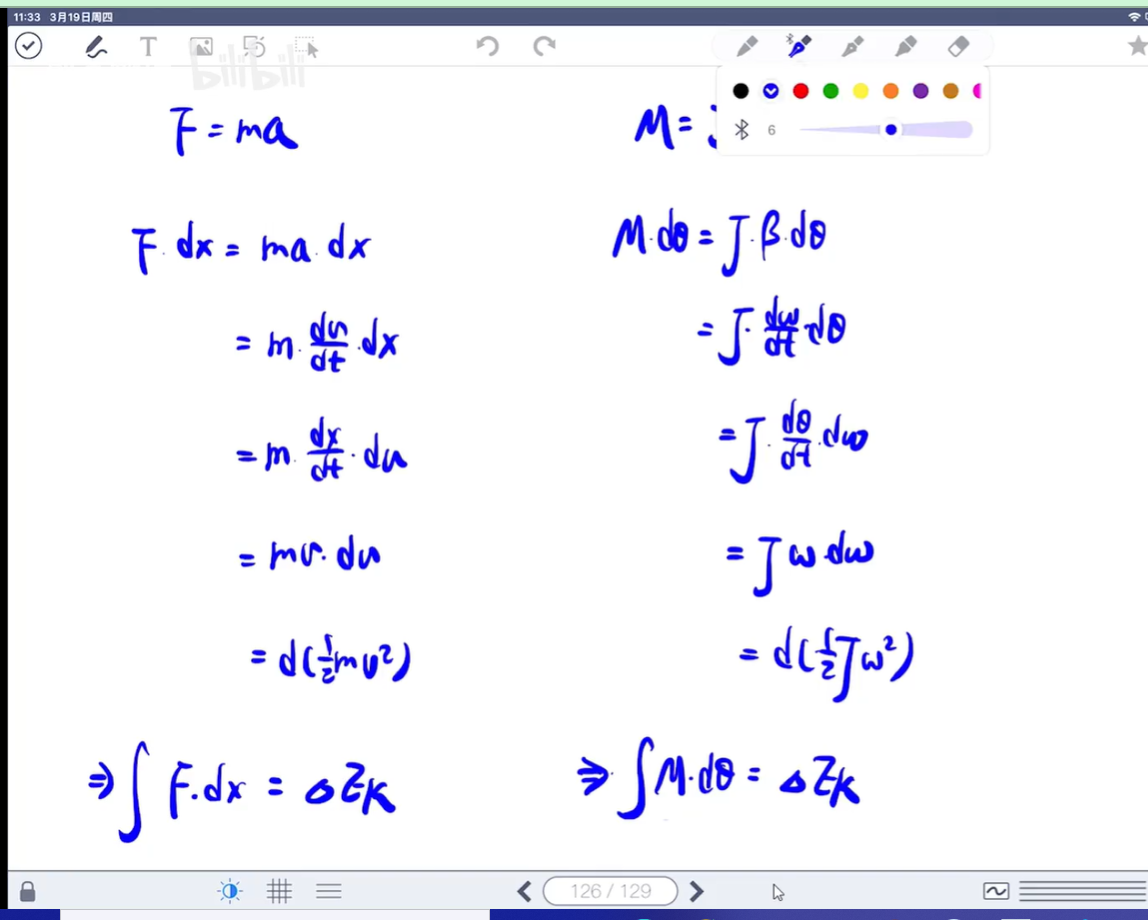 11:33 3月19日周四
bilibili
T
6
F = ma
M =
F · dx = ma · dx
= m · du/dt · dx
= m · dx/dt · du
= mv · du
= d(1/2 mv²)
⇒ ∫ F · dx = ΔEk
M · dθ = J · β · dθ
= J · dω/dt · dθ
= J · dθ/dt · dω
= J ω dω
= d(1/2 J ω²)
⇒ ∫ M · dθ = ΔEk
126 / 129